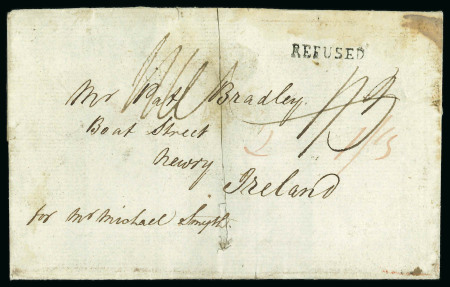 REFUSED
Mr Pat Bradley.
Boat Street
Newry
Ireland
for Mr Michael Smyth.